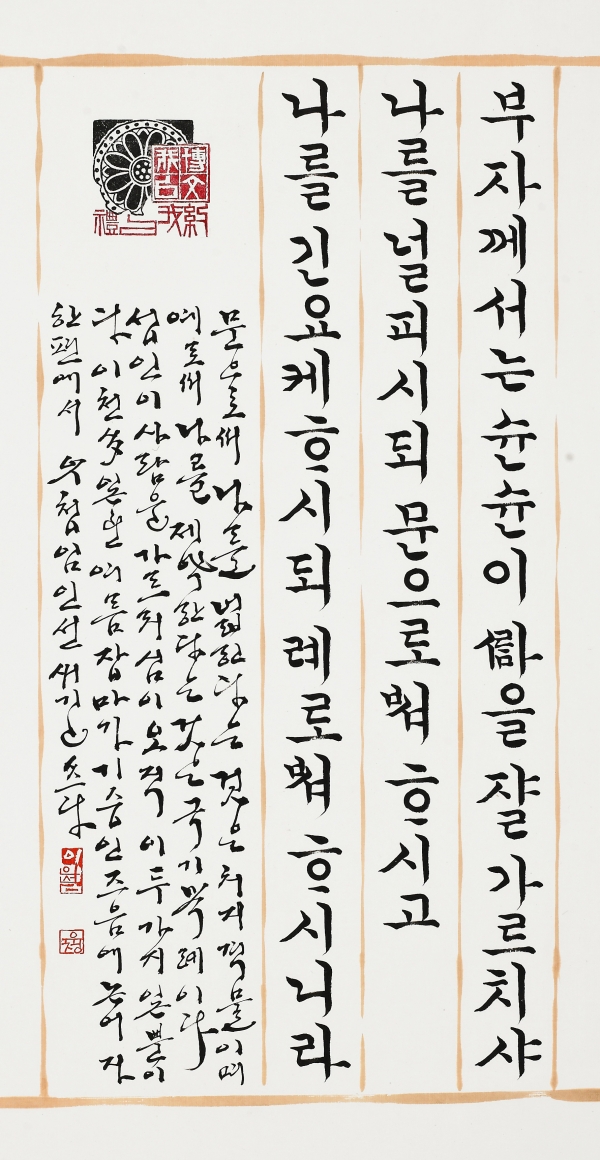 부자께서는 슌슌이 을 쟐 가르치샤
나를 널피시되 문으로ᄡᅥ ᄒᆞ시고
나를 긴요케 ᄒᆞ시되 례로ᄡᅥ ᄒᆞ시니라
博我以文
約我以禮
문으로써 나를 넓힌다는 것은 치지격물이며
예로써 나를 제約한다는 것은 극기복례이다
성인이 사람을 가르치심이 오직 이 두가지 일뿐이
다 이천 일년 여름 장마가 기승인 즈음에 논어 자
한편에서 임인선 새기고 쓰다